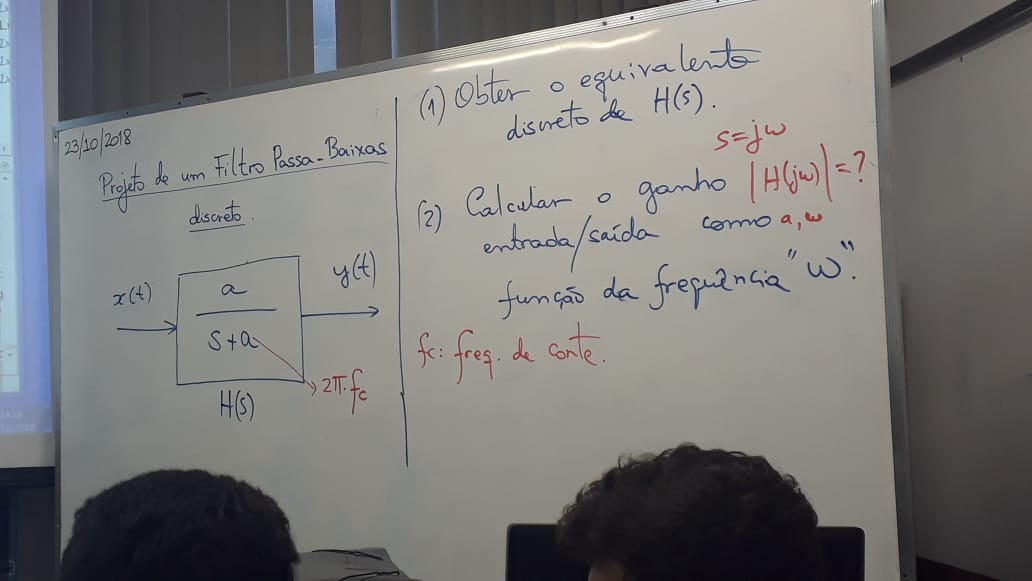 23/10/2018
Projeto de um Filtro Passa-Baixas
discreto.
x(t)
a
s+a
y(t)
2π.fc
H(s)
(1) Obter o equivalente
discreto de H(s).
s=jw
(2) Calcular o ganho |H(jw)|=?
entrada/saída como a,w
função da frequência "w".
fc: freq. de conte.